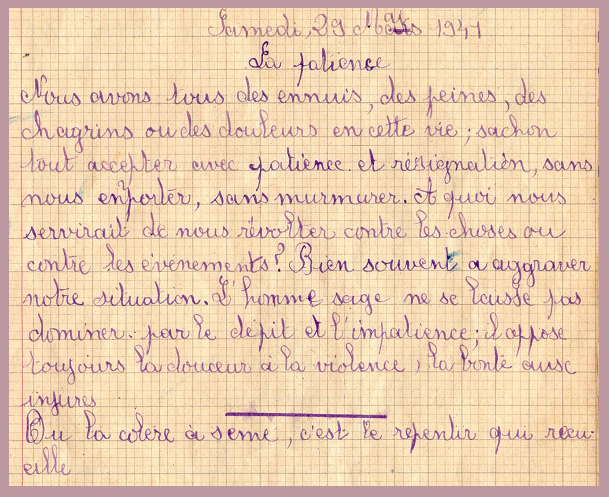 Samedi, 29 Mars 1941
La patience
Nous avons tous des ennuis, des peines, des
chagrins ou des douleurs en cette vie ; sachon
tout accepter avec patience et résignation, sans
nous emporter, sans murmurer. A quoi nous
servirait de nous révolter contre les choses ou
contre les évènements ? Bien souvent a aggraver
notre situation. L'homme sage ne se laisse pas
dominer par le dépit et l'impatience ; il oppose
toujours la douceur à la violence, la bonté aux
injures
Ou la colère à semé, c'est le repentir qui recu-
eille